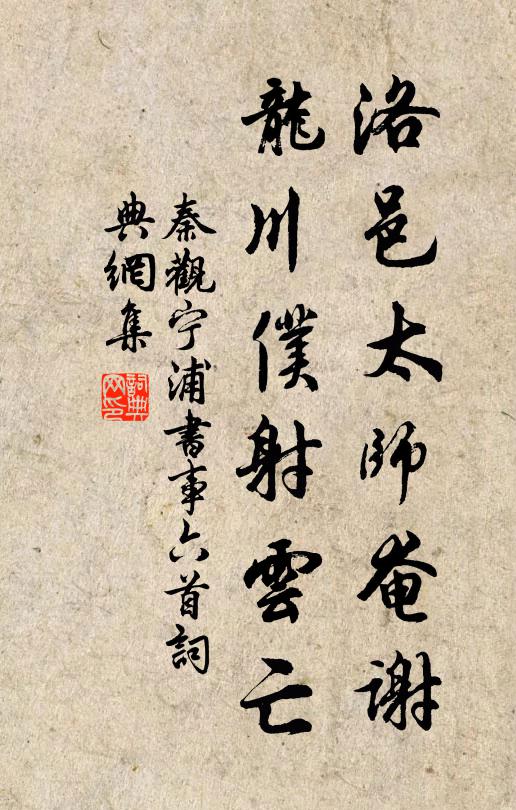 洛邑太師奄謝
龍川僕射雲亡
秦觀宁浦書事六首詞
典網集
詞典網印